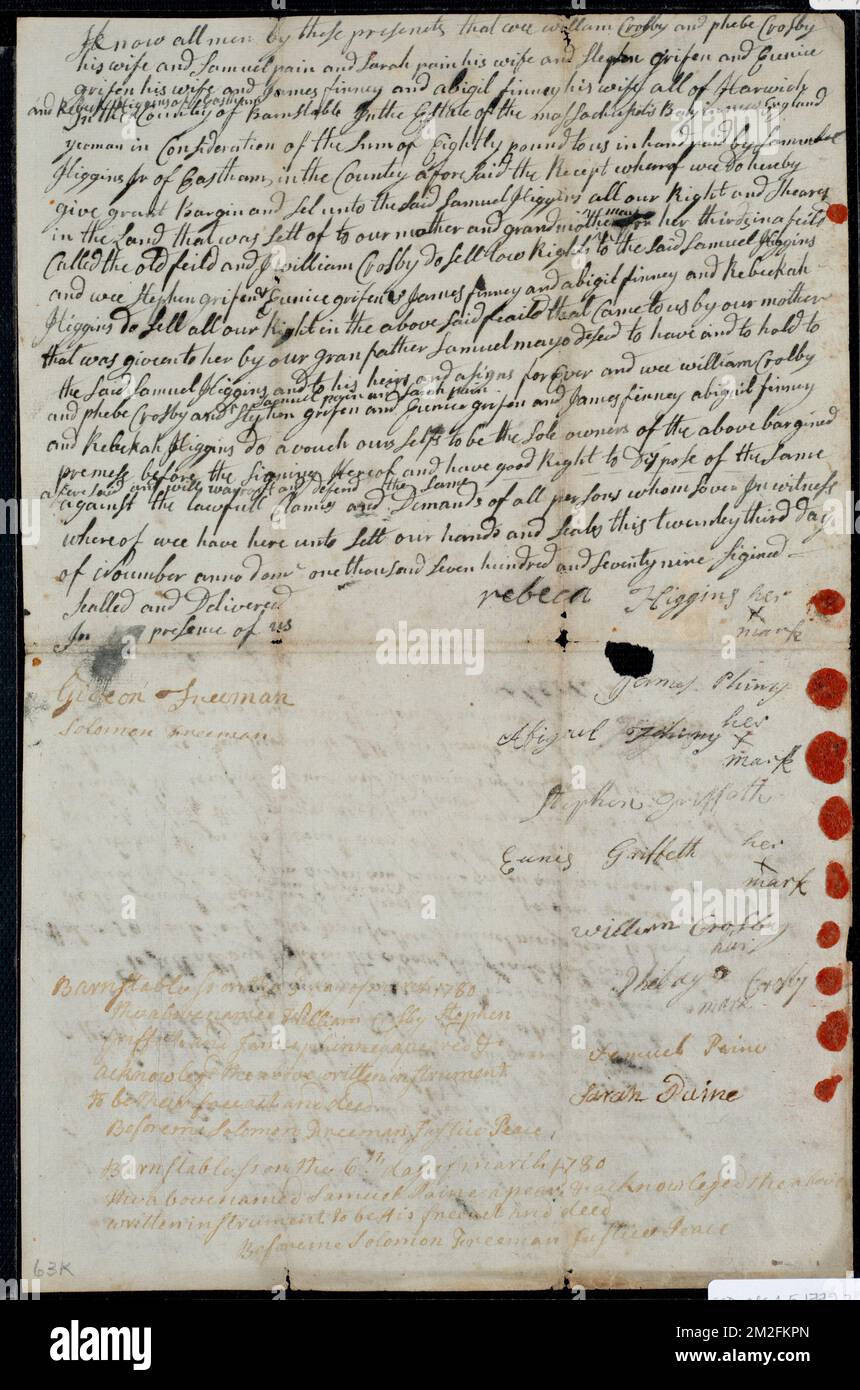 Know all men by these presents that wee william Crosby and phebe Crosby
his wife and Samuel pain and Sarah pain his wife and Stephen grifen and Eunice
grifen his wife and James finney and abigil finney his wife all of Harwich
and Rebeckah Higgins of Eastham
In the County of Barnstable In the Esttate of the massachusets Bay in new England
yeoman in Consideration of the Sum of Eightly pound to us in hand paid by Samuel
Higgins Jr of Eastham in the County afore Said the Recept wharof wee Do hereby
give grant Bargin and Sel unto the Said Samuel Higgins all our Right and Shears
in the Land that was Sett of to our mother and grand mother mayo for her thirds in a feild
Called the old feild and I william Crosby do sell tow Rights to the Said Samuel Higgins
and wee Stephen grifen & Eunice grifen & James finney and abigil finney and Rebeckah
Higgins do Sell all our Right in the above Said feaild that Came to us by our mother
that was given to her by our gran father Samuel mayo desed to have and to hold to
the Said Samuel Higgins and to his heirs and asigns for Ever and wee william Crosby
Samuel pain and Sarah pain
and phebe Crosby and Stephen grifen and Eunice grifen and James finney abigil finney
and Rebekah Higgins do avouch our Selfs to be the Sole owners of the above bargined
premese before the Signing Hereof and have good Right to Dispose of the Same
afore said and will warrant and defend the same
against the lawfull Clames and Demands of all persons whom Sover In witness
where of wee have here unto Sett our hands and Seals this twenley third Day
of November anno dom one thousand Seven hundred and Seventy nine Sigined
Sealled and Delivered
In presence of us
rebeca Higgins her
x
mark
James Phiney
Gideon Freeman
Solomon Freeman
Abigael Phiney her
x
mark
Stephen Griffath
Eunis Griffeth her
x
mark
William Crosby
her
Phebay Crosby
mark
Samuel Paine
Sarah Paine
Barnstable ss on the of march 1780
the above named William Crosby Stephen
Griffeth and James phinney apeared &
acknowlege the above written instrument
to be their free act and deed
Before me Solomon Freeman Justice Peace
Barnstable ss on the 6th day of march 1780
the above named Samuel Paine apeared & acknowleged the above
written instrument to be His free act and deed
Before me Solomon Freeman Justice Peace
63K
alamy
alamy
Image ID: 2M2FKPN
www.alamy.com